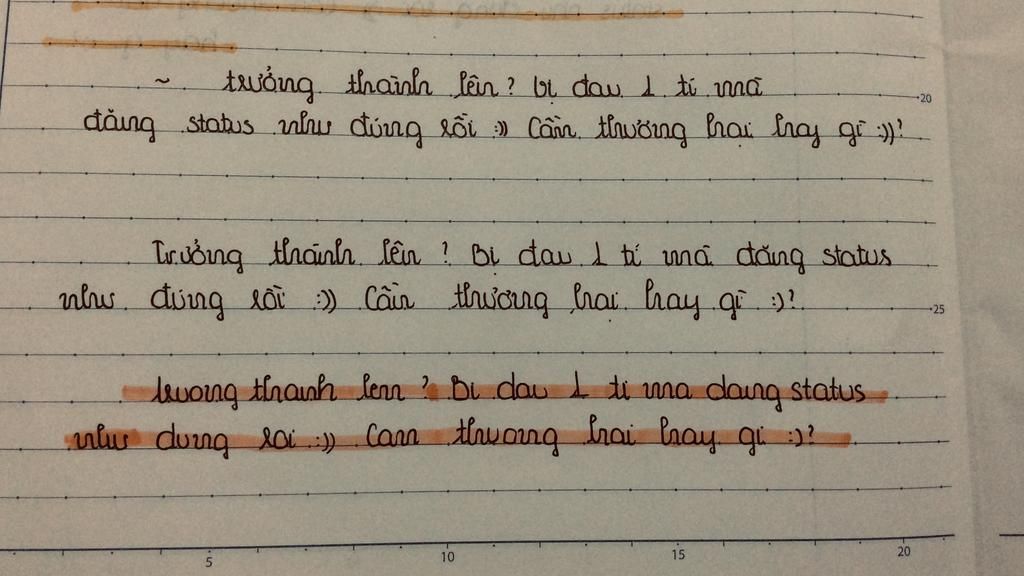 ~ trưởng thành lên? bị đau 1 tí mà
đăng status như đúng rồi :)) Cần thương hại hay gì :))?
Trưởng thành lên? Bị đau 1 tí mà đăng status
như đúng rồi :)) Cần thương hại hay gì :)?
truong thanh lenn? Bi dau 1 ti ma dang status
nhu dung roi :)) Cann thuong hai hay gi :)?
20
25
5
10
15
20